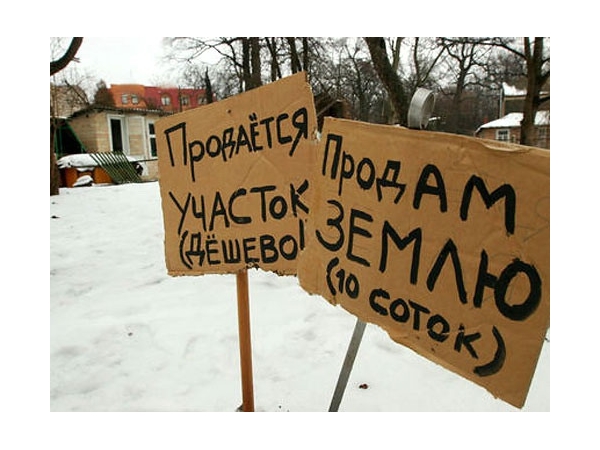 Продаётся
участок
(дёшево!
Продам
землю
(10 соток)